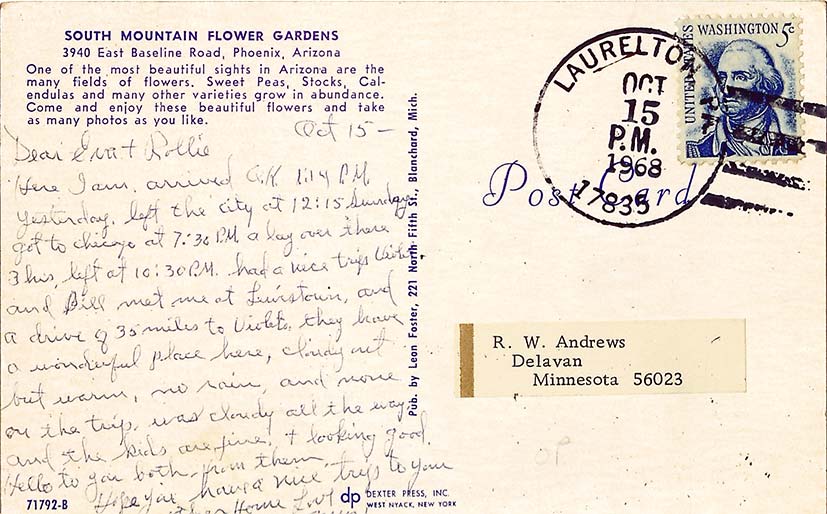 SOUTH MOUNTAIN FLOWER GARDENS
3940 East Baseline Road, Phoenix, Arizona
One of the most beautiful sights in Arizona are the
many fields of flowers. Sweet Peas, Stocks, Cal-
endulas and many other varieties grow in abundance.
Come and enjoy these beautiful flowers and take
as many photos as you like.
Oct 15 —
Dear Eva + Rollie
Here I am, arrived O.K. 1:14 P.M.
yesterday, left the city at 12:15 Sunday
got to chicago at 7:30 P.M. a lay over there
3 hrs, left at 10:30 P.M. had a nice trip, Violet
and Bill met me at Lewistown, and
a drive of 35 miles to Violets, they have
a wonderful place here, cloudy out
but warm, no rain, and none
on the trip, was cloudy all the way
and the kids are fine, + looking good.
Hello to you both from them
Hope you have a nice trip to your
Home Love
71792-B
Pub. by Leon Foster, 221 North Fifth St., Blanchard, Mich.
dp DEXTER PRESS, INC.
WEST NYACK, NEW YORK
Post Card
LAURELTON
OCT
15
P.M.
1968
17835
UNITED STATES
WASHINGTON 5c
R. W. Andrews
Delavan
Minnesota 56023
OP